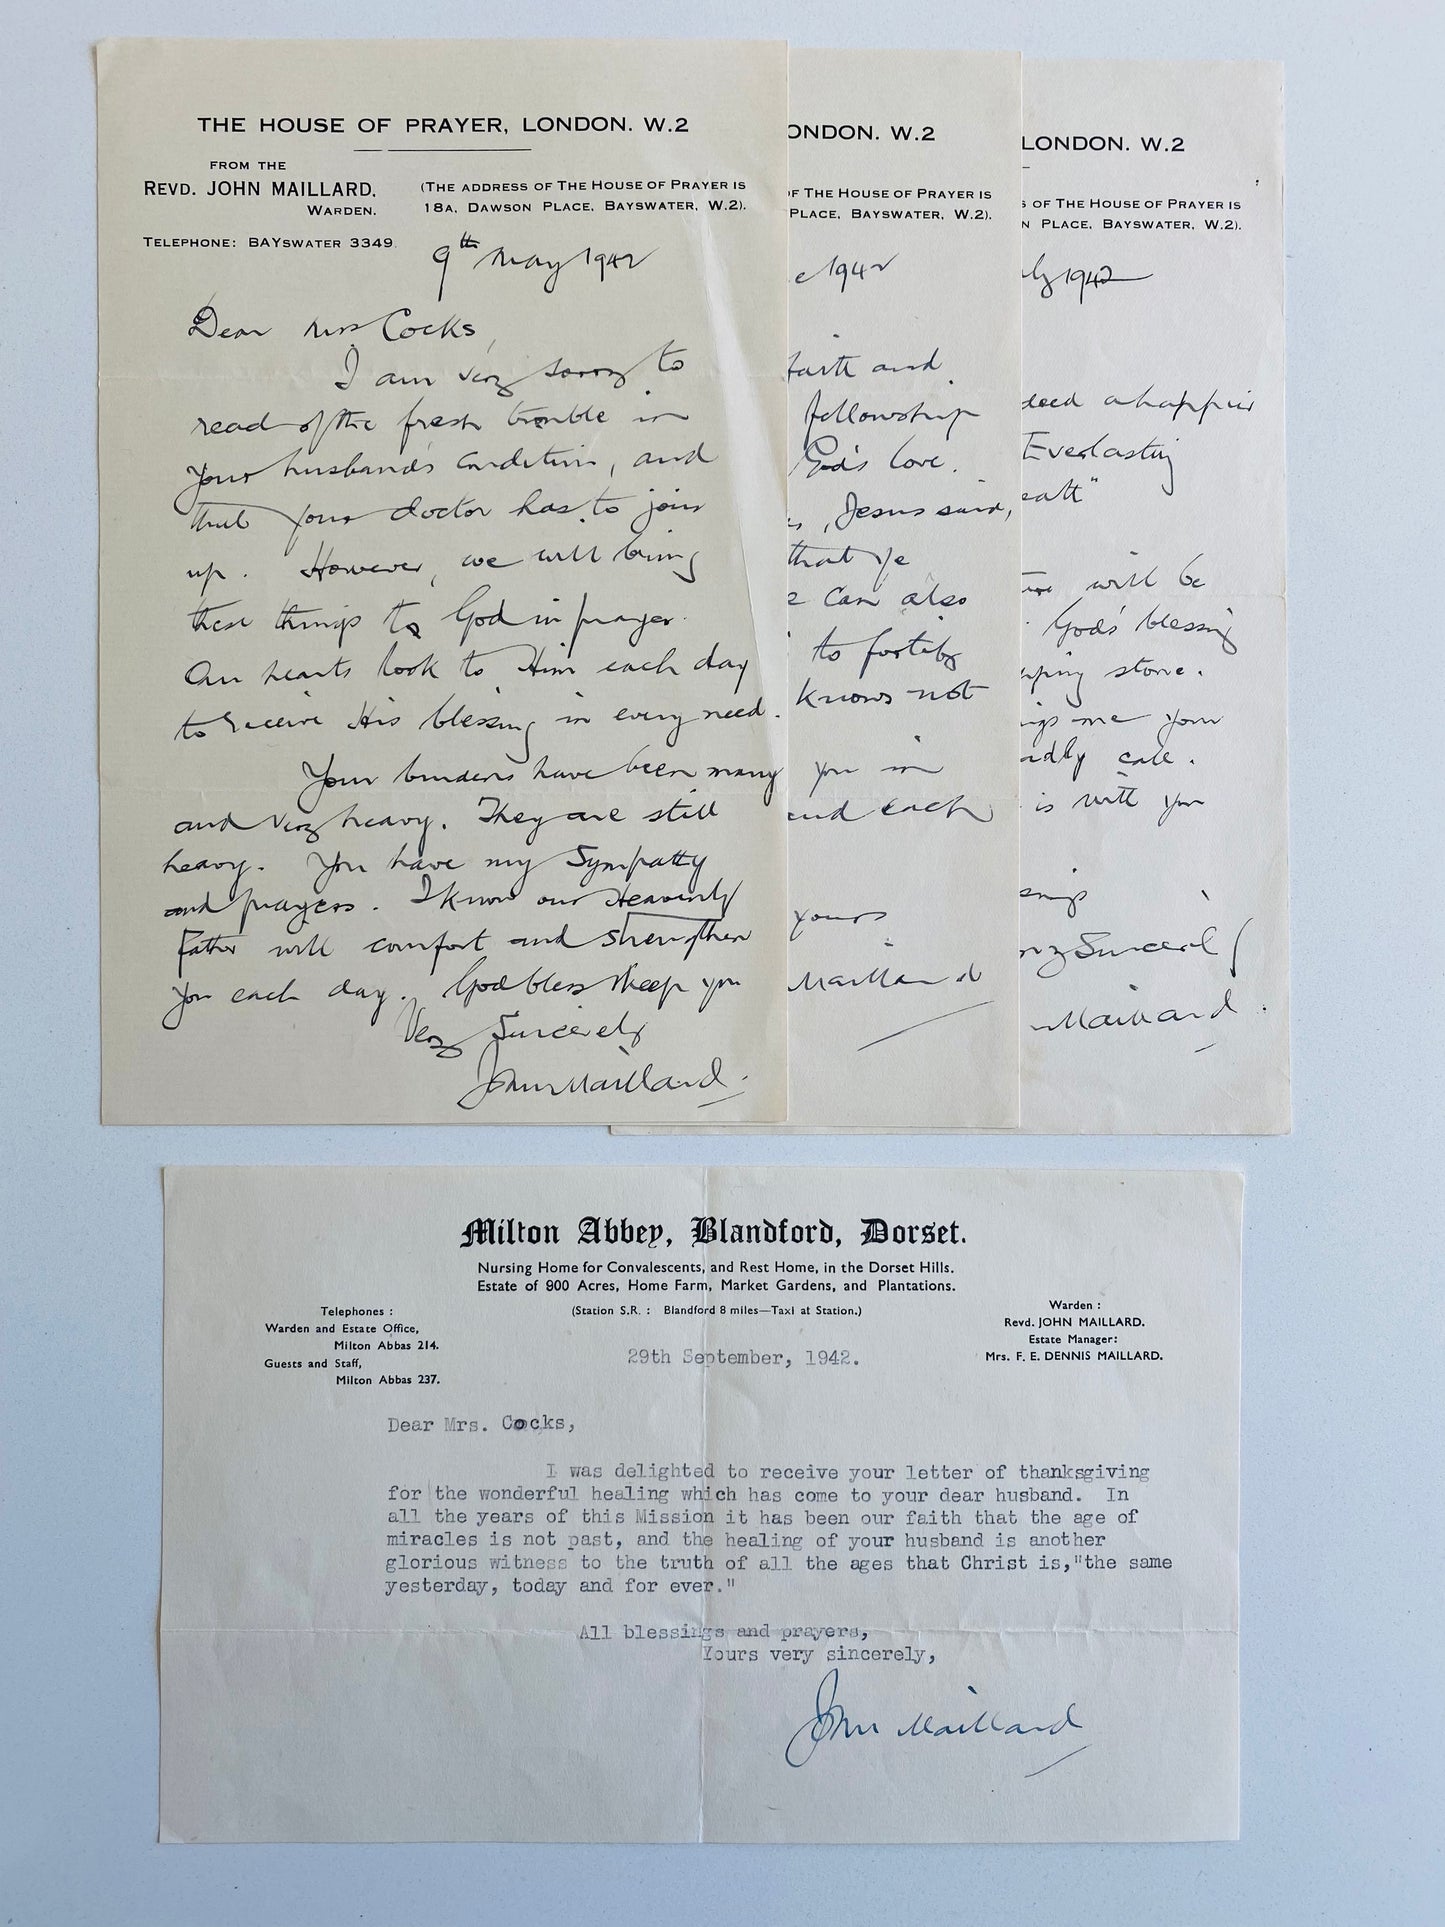 THE HOUSE OF PRAYER, LONDON. W.2
FROM THE
REVD. JOHN MAILLARD.
WARDEN.
(THE ADDRESS OF THE HOUSE OF PRAYER IS
18A, DAWSON PLACE, BAYSWATER, W.2).
TELEPHONE: BAYSWATER 3349.
9th May 1942
Dear Mrs Cocks,
I am very sorry to
read of the fresh trouble in
your husband's condition, and
that your doctor has to join
up. However, we will bring
these things to God in prayer.
Our hearts look to Him each day
to receive His blessing in every need.
Your burdens have been many
and very heavy. They are still
heavy. You have my sympathy
and prayers. I know our Heavenly
Father will comfort and strengthen
you each day. God bless & keep you
Very Sincerely
John Maillard.
ONDON. W.2
F THE HOUSE OF PRAYER IS
PLACE, BAYSWATER, W.2).
e 1942
faith and
fellowship
God's love.
, Jesus said,
that ye
can also
to fortify
knows not
you in
and each
yours
Maillard
LONDON. W.2
S OF THE HOUSE OF PRAYER IS
N PLACE, BAYSWATER, W.2).
ly 1942
deed a happier
Everlasting
eath"
will be
God's blessing
pping stone.
ngs me your
adly call.
is with you
ssings
Sincerely
Maillard.
Milton Abbey, Blandford, Dorset.
Nursing Home for Convalescents, and Rest Home, in the Dorset Hills.
Estate of 900 Acres, Home Farm, Market Gardens, and Plantations.
(Station S.R. : Blandford 8 miles—Taxi at Station.)
Telephones :
Warden and Estate Office,
Milton Abbas 214.
Guests and Staff,
Milton Abbas 237.
Warden :
Revd. JOHN MAILLARD.
Estate Manager:
Mrs. F. E. DENNIS MAILLARD.
29th September, 1942.
Dear Mrs. Cocks,
I was delighted to receive your letter of thanksgiving
for the wonderful healing which has come to your dear husband. In
all the years of this Mission it has been our faith that the age of
miracles is not past, and the healing of your husband is another
glorious witness to the truth of all the ages that Christ is,"the same
yesterday, today and for ever."
All blessings and prayers,
Yours very sincerely,
John Maillard